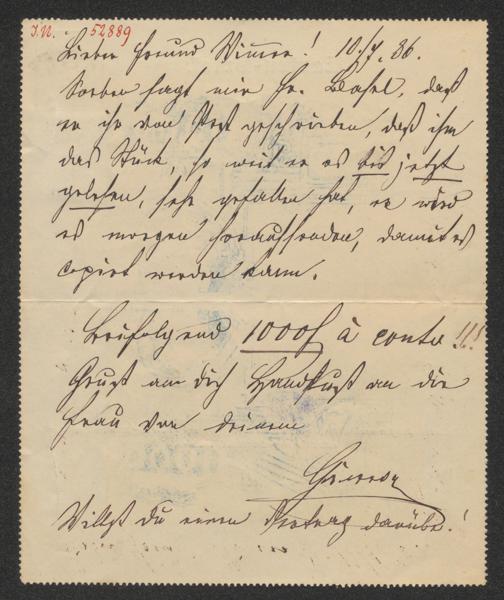 I.N. 52889
Lieber Freund Wimmer! 10./7. 86.
Soeben sagt mir Hr. Basel, daß
er ihr von Pest geschrieben, daß ihm
das Stück, so weit er es bis jetzt
gelesen, sehr gefallen hat, er wird
es morgen heraussenden, damit es
copirt werden kann.
Beifolgend 1000f à conto!!!
Gruß an dich Handkuß an die
Frau von deinem
Willst du einen Vertrag darüber!